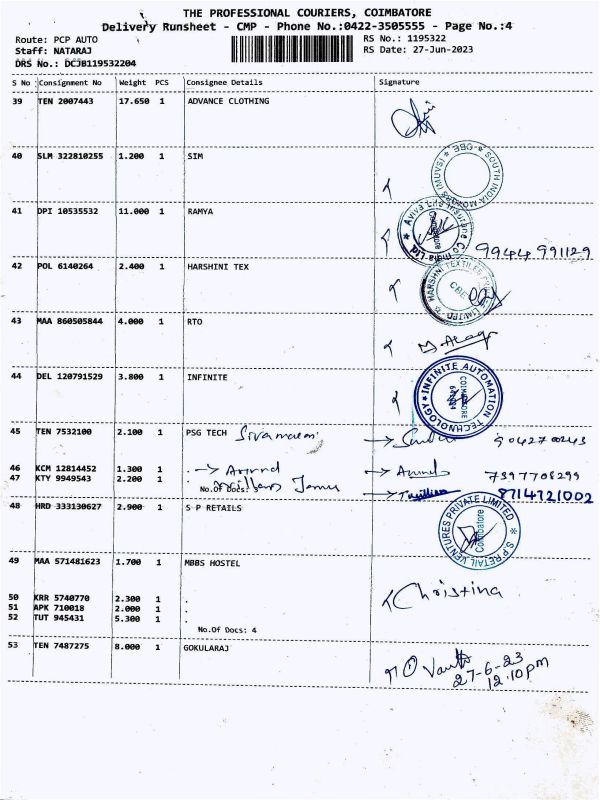 THE PROFESSIONAL COURIERS, COIMBATORE
Delivery Runsheet - CMP - Phone No.:0422-3505555 - Page No.:4
Route: PCP AUTO RS No.: 1195322
Staff: NATARAJ RS Date: 27-Jun-2023
DRS No.: DCJB119532204
S No Consignment No Weight PCS Consignee Details Signature
39 TEN 2007443 17.650 1 ADVANCE CLOTHING
40 SLM 322810255 1.200 1 SIM
SOUTH INDIA MOVERS (MUVSI) * CBE *
41 DPI 10535532 11.000 1 RAMYA
Aviva Life Insurance Co. India Ltd. * Coimbatore
9944 991129
42 POL 6140264 2.400 1 HARSHINI TEX
CBE
43 MAA 860505844 4.000 1 RTO
44 DEL 120791529 3.800 1 INFINITE
INFINITE AUTOMATION TECHNOLOGY * COIMBATORE
45 TEN 7532100 2.100 1 PSG TECH
46 KCM 12814452 1.300 1 . → Arvind 7397708299
47 KTY 9949543 2.200 1 .
No.Of Docs: 3 8714721002
48 HRD 333130627 2.900 1 S P RETAILS
S P RETAIL VENTURES PRIVATE LIMITED * Coimbatore
49 MAA 571481623 1.700 1 MBBS HOSTEL
Christina
50 KRR 5740770 2.300 1 .
51 APK 710018 2.000 1 .
52 TUT 945431 5.300 1 .
No.Of Docs: 4
53 TEN 7487275 8.000 1 GOKULARAJ
27-6-23
12.10pm